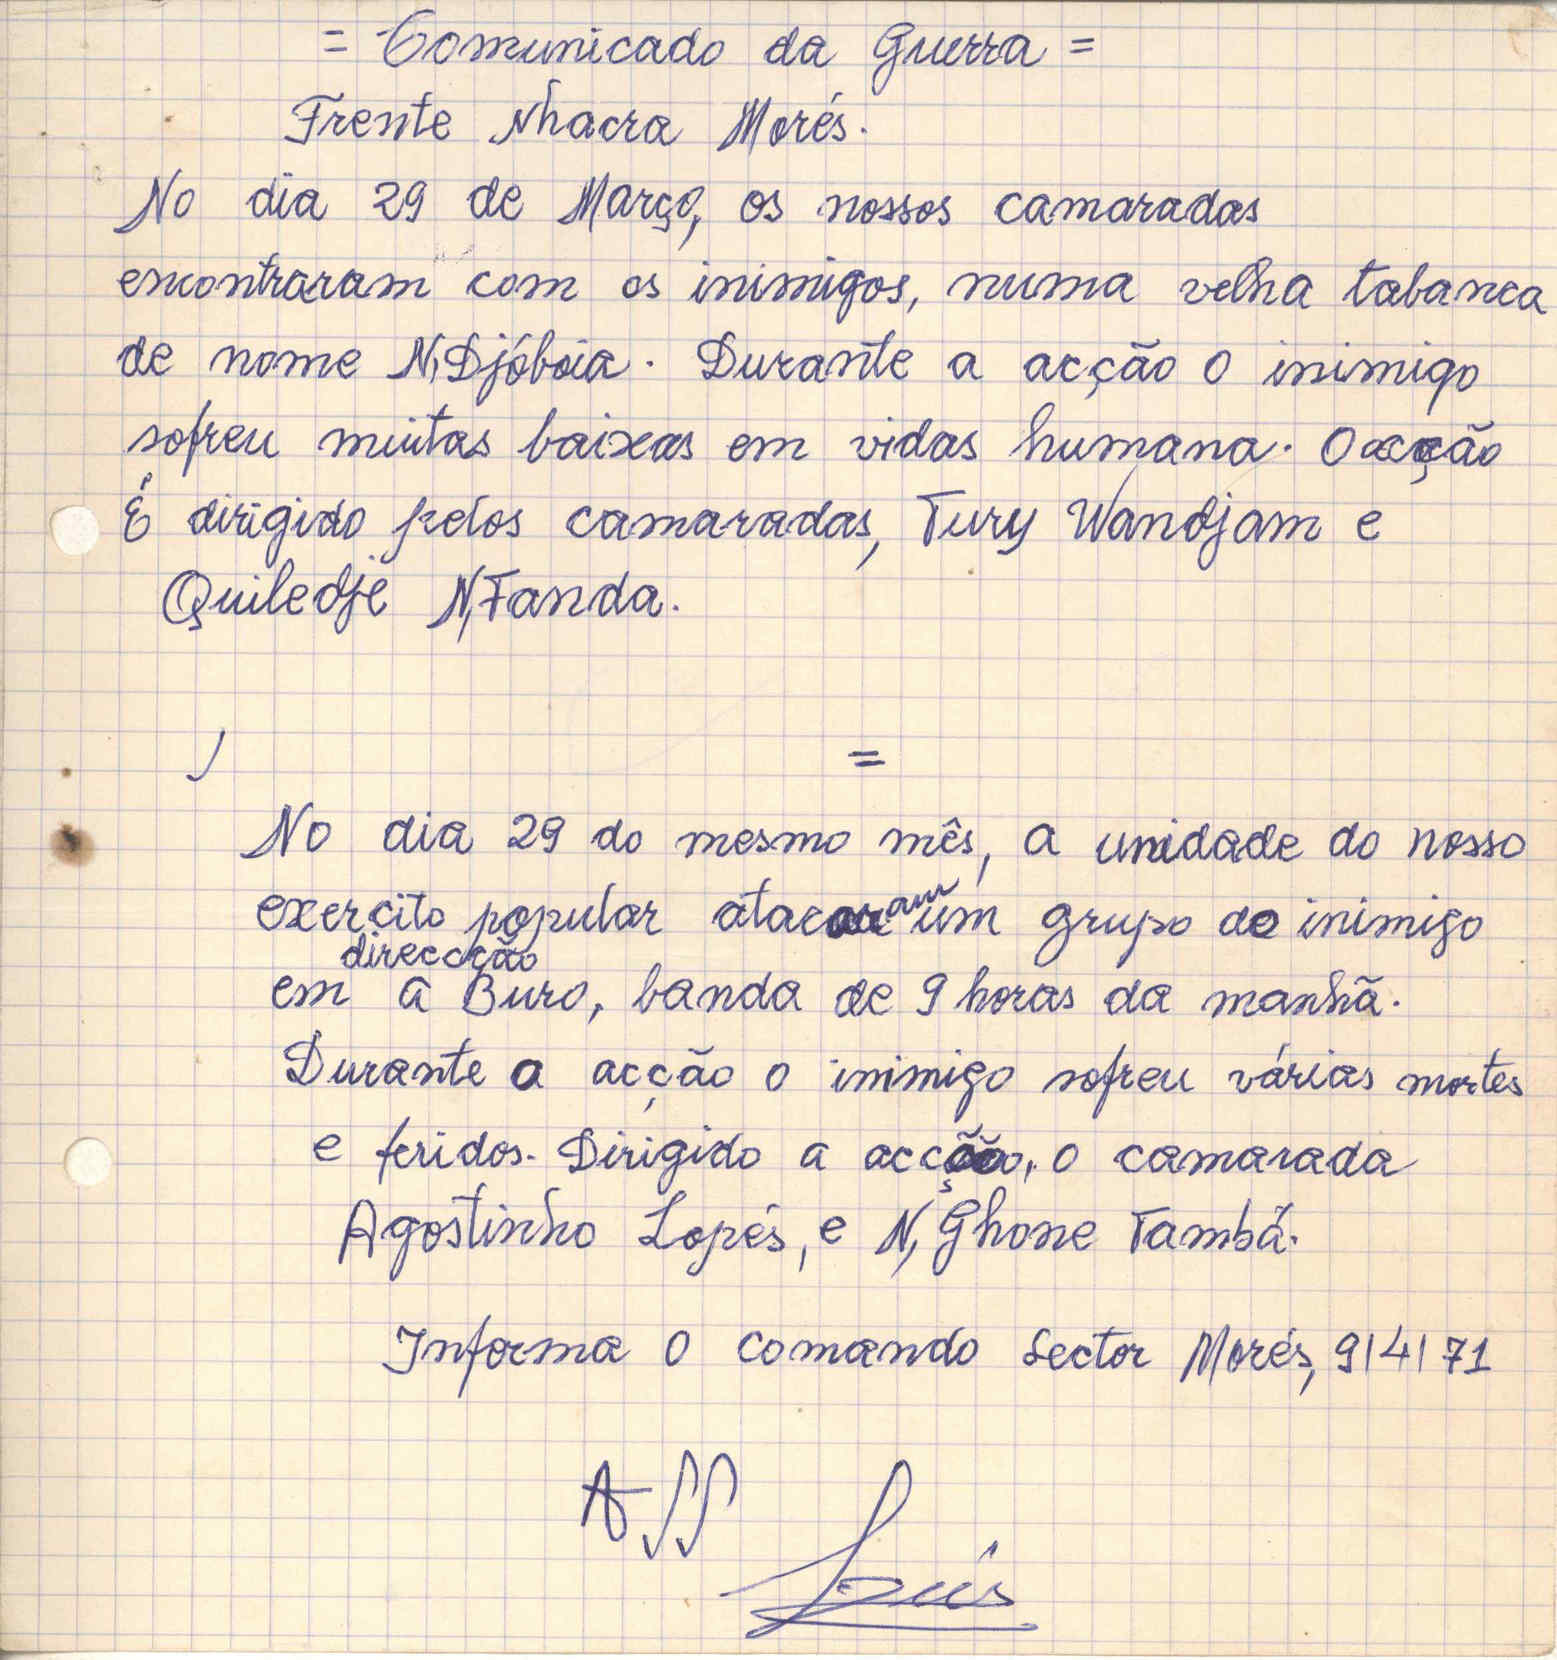 = Comunicado da Guerra =
Frente Nhacra Morés.
No dia 29 de Março, os nossos camaradas
encontraram com os inimigos, numa velha tabanca
de nome N,Djóboia. Durante a acção o inimigo
sofreu muitas baixas em vidas humana. O acção
É dirigido pelos camaradas, Tury Wandjam e
Quiledje N,Tanda.
=
No dia 29 do mesmo mês, a unidade do nosso
exercito popular atacaram um grupo do inimigo
direcção
em a Buro, banda de 9 horas da manhã.
Durante a acção o inimigo sofreu várias mortes
e feridos. Dirigido a acção, o camarada
Agostinho Lopés, e N,Ghone Tambá.
Informa o comando Sector Morés, 9/4/71
Ass